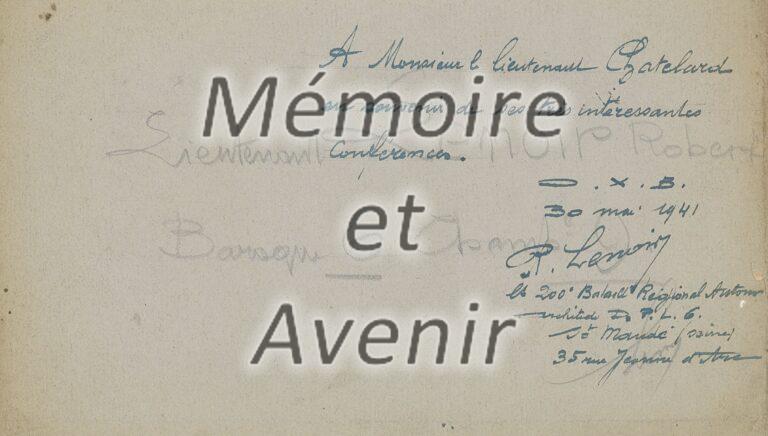 A Monsieur le lieutenant Chatelard
en souvenir de ses très intéressantes
Conférences.
Lieutenant LENOIR Robert
O.X.B.
30 mai 1941
R. Lenoir
Lt 200e Bataill Régional
D.P.L.G.
St Mandé (Seine)
35 rue Jeanne d'Arc
Baraque Chambre
Mémoire
et
Avenir